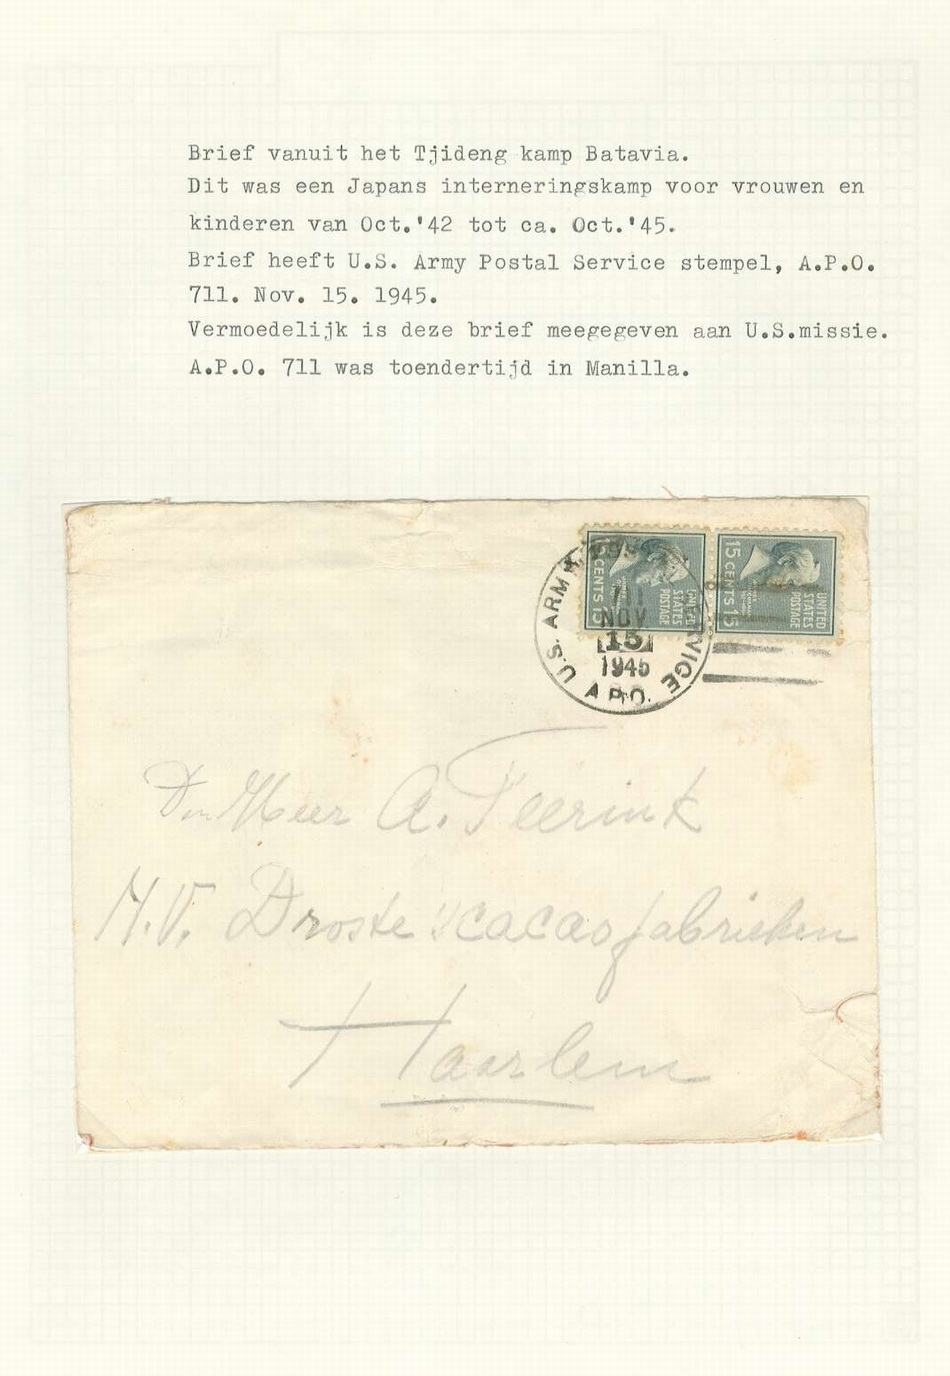 Brief vanuit het Tjideng kamp Batavia.
Dit was een Japans interneringskamp voor vrouwen en
kinderen van Oct.'42 tot ca. Oct.'45.
Brief heeft U.S. Army Postal Service stempel, A.P.O.
711. Nov. 15. 1945.
Vermoedelijk is deze brief meegegeven aan U.S.missie.
A.P.O. 711 was toendertijd in Manilla.
15 CENTS 15
UNITED
STATES
POSTAGE
15 CENTS 15
UNITED
STATES
POSTAGE
U.S. ARMY
NOV
15
1945
A.P.O.
Den Heer A. Teerink
N.V. Droste's cacaofabrieken
Haarlem